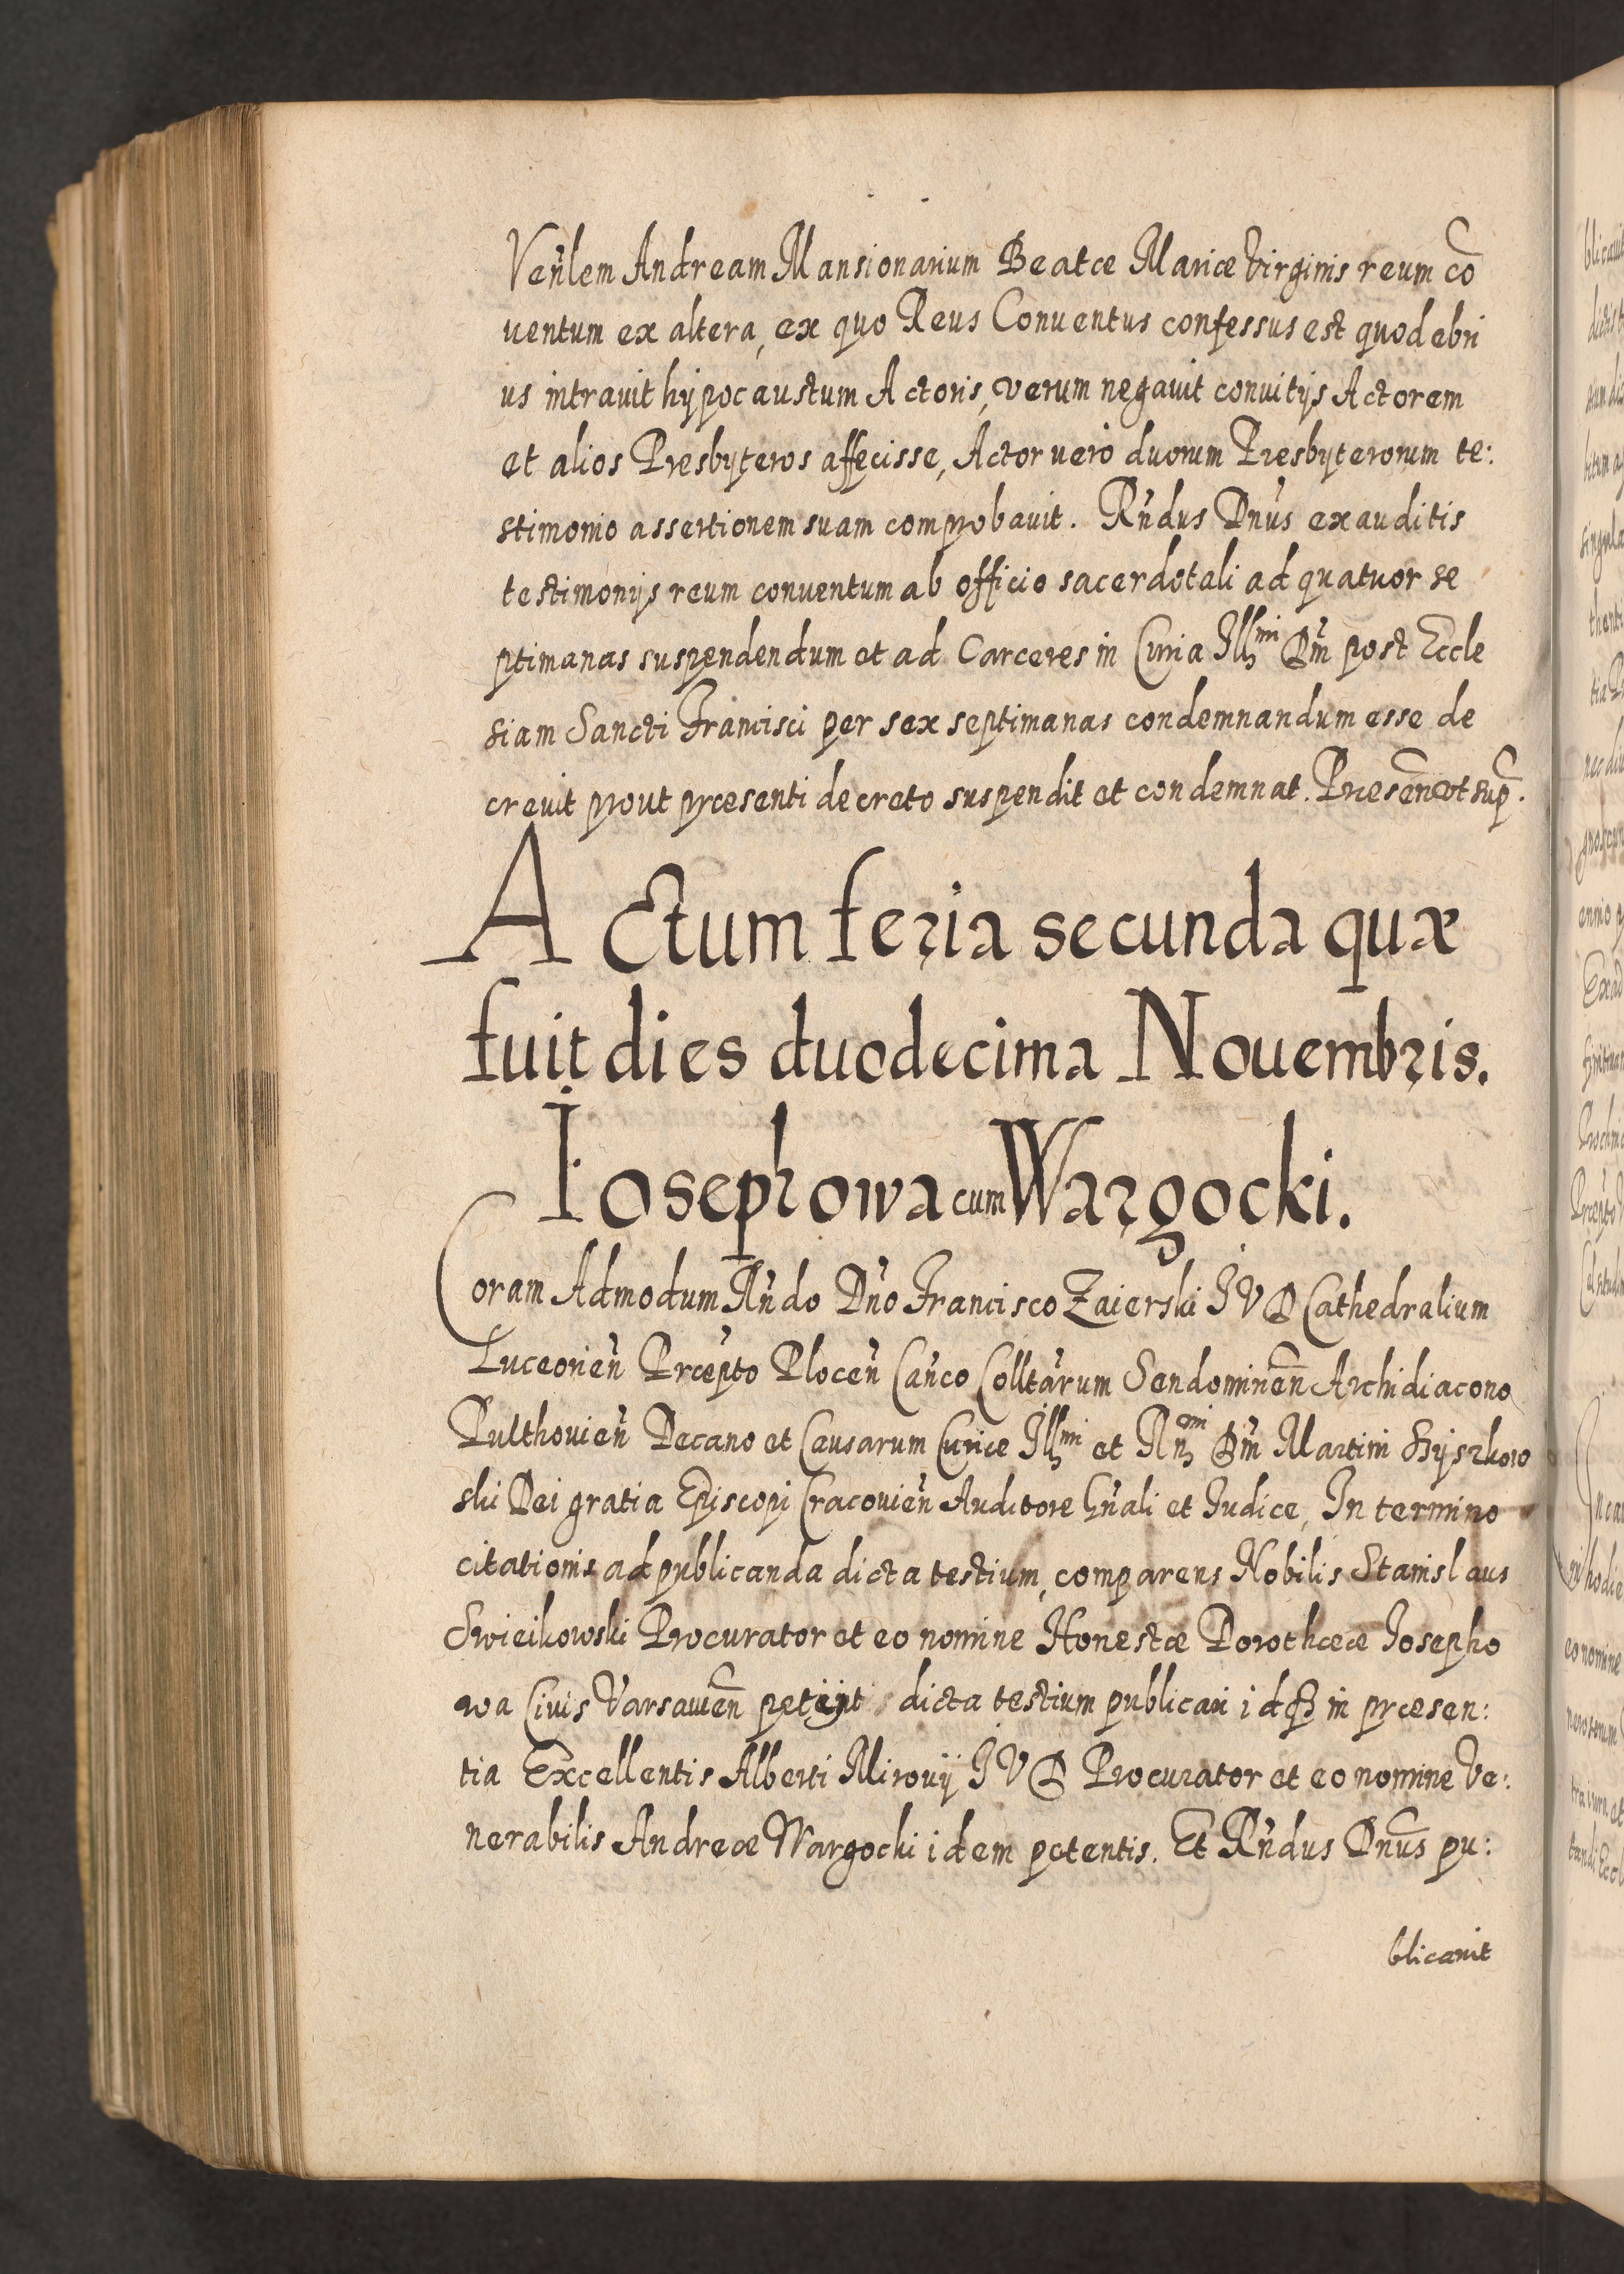 Venlem Andream Mansionarium Beatæ Mariæ Virginis reum cō
uentum ex altera, ex quo Reus Conuentus confessus est quod ebri
us intrauit hypocaustum Actoris, verum negauit conuitijs Actorem
et alios Presbyteros affecisse, Actor uero duorum Presbyterorum te:
stimonio assertionem suam comprobauit. Rndus Dnus exauditis
testimonijs reum conuentum ab officio sacerdotali ad quatuor se
ptimanas suspendendum et ad Carceres in Curia Illmi Dm̄ post Eccle
siam Sancti Francisci per sex septimanas condemnandum esse de
creuit prout præsenti decreto suspendit et condemnat. Præsen̄ ut sup.
Actum feria secunda quæ
fuit dies duodecima Nouembris.
Iosephowa cum Wargocki.
Coram Admodum Rndo Dno Francisco Zaierski I V D Cathedralium
Luceorien̄ Præpto Plocen̄ Canco Colltarum Sendomirien̄ Archidiacono
Pulthouien̄ Decano et Causarum Curiæ Illmi et Rmi Dm̄ Martini Szyszkow
ski Dei gratia Episcopi Cracouien̄ Auditore Gnali et Iudice, In termino
citationis ad publicanda dicta testium, comparens Nobilis Stanislaus
Swieikowski Procurator et eo nomine Honestæ Dorotheæ Iosepho
wa Ciuis Varsauien̄ petijt dicta testium publicari idq3 in præsen:
tia Excellentis Alberti Mirouij I V D Procurator et eo nomine Ve:
nerabilis Andreæ Wargocki idem petentis. Et Rndus Dnus pu:
blicauit